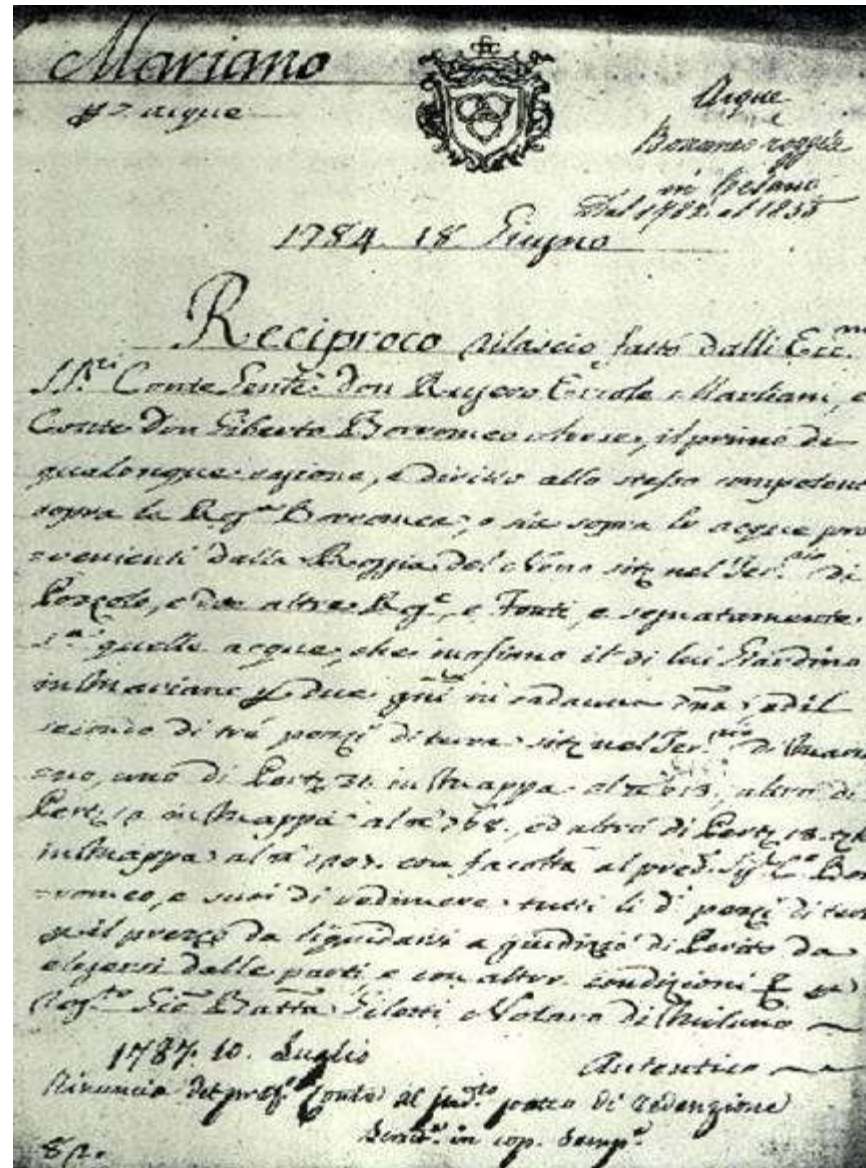 Mariano
acque
Acque
e
Borromeo roggia
in
Dal 1782. al 1855
1784. 18 Giugno
Reciproco rilascio fatto dalli Ecc.mi
SS.ri Conte Don Rugero Ercole Marliani, e
Conte Don Giberto Borromeo Arese, il primo di
qualonque ragione, e diritto allo stesso competent
sopra la Rog.a Borromea, o sia sopra le acque pro
=venienti dalla Roggia del Nono sitz nel Ter.rio di
e altre Rog.e, e Fonti, e segnatamente
quelle acque, che inafiano il di lui Giardino
in Mariano due in cadauna ed il
secondo di trè pezzi di terra sitz nel Ter.rio di Maria
=no, uno di Pert. 21. in Mappa al n.o altro di
Pert. in Mappa al n.o 768., ed altro di Pert. 18.
in Mappa al n.o con facoltà al pred. Sig. C.e Bor
=romeo, e suoi di redimere tutti li d.i pezzi di terra
il prezzo da liquidarsi a giudizio di Perito da
elegersi dalle parti e con altre condizioni
Rog.to Gio Batta Notaro di Milano
1787. 10. Luglio
Autentico
Rinuncia del Conte al patto di redenzione
in cop. semp.e